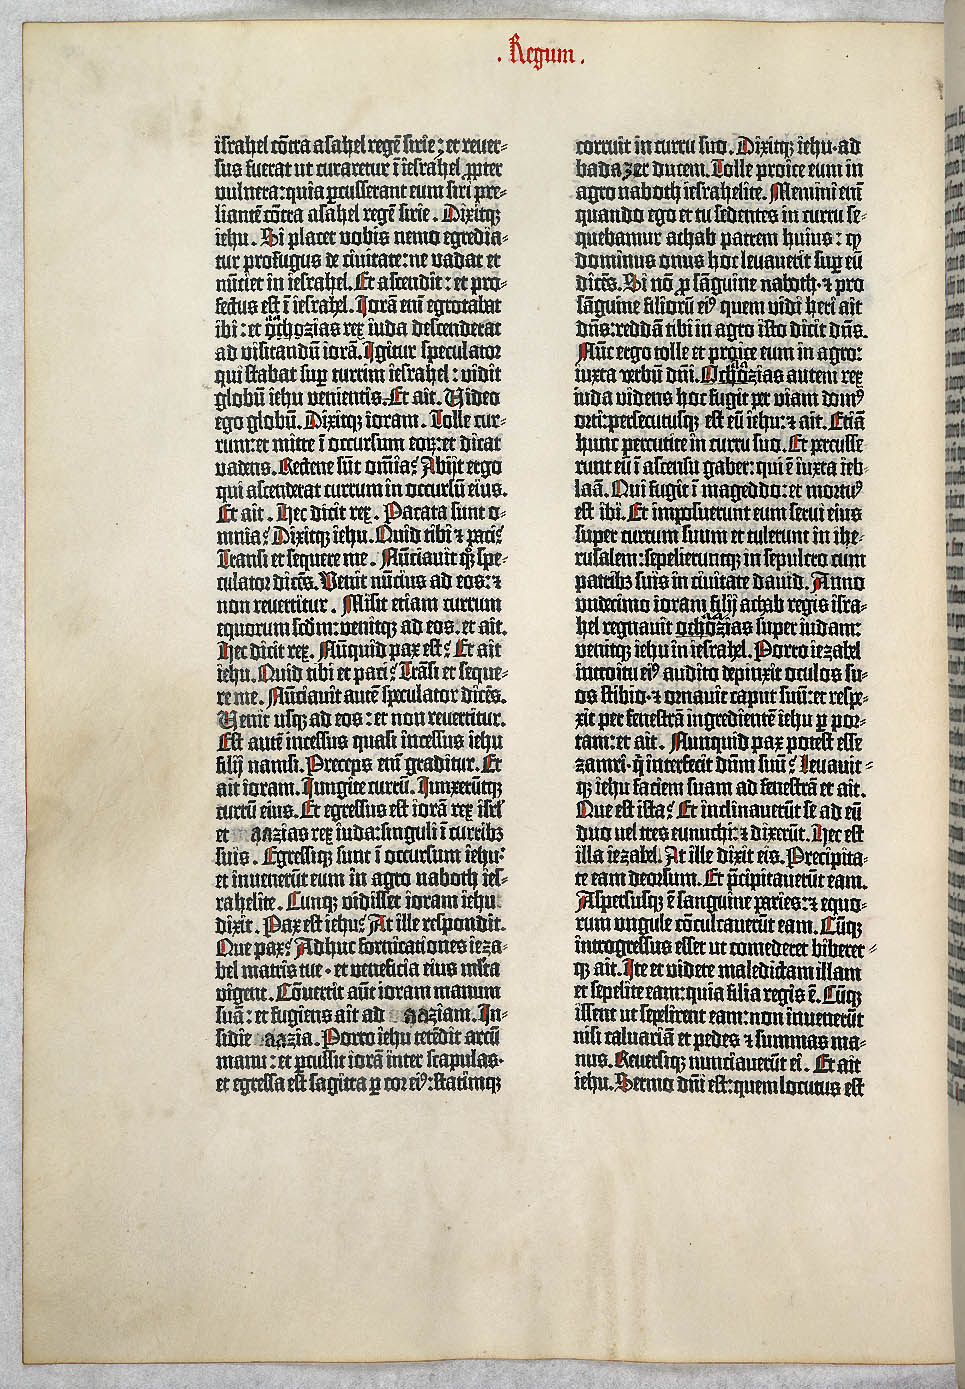 . Regum .
israhel cõtra asahel regẽ sirie; et reuer-
sus fuerat ut curaretur ĩ iesrahel ꝓpter
vulnera: quia ꝑcusserant eum siri pre-
liantẽ cõtra asahel regẽ sirie. Dixitqꝫ
iehu. Si placet vobis nemo egredia-
tur profugus de ciuitate: ne vadat et
nũciet in iesrahel. Et ascendit: et pro-
fectus est ĩ iesrahel. Iorã enĩ egrotabat
ibi: et ochozias rex iuda descenderat
ad visitandũ iorã. Igitur speculator
qui stabat suꝑ turrim iesrahel: vidit
globũ iehu venientis. Et ait. Video
ego globũ. Dixitqꝫ ioram. Tolle cur-
rum: et mitte ĩ occursum eoꝝ: et dicat
vadens. Rectene sũt om̃ia? Abijt ergo
qui ascenderat currum in occursũ eius.
Et ait. Hec dicit rex. Pacata sunt o-
mnia? Dixitqꝫ iehu. Quid tibi ⁊ paci?
Transi et sequere me. Nũciauit qꝫ spe-
culator dicẽs. Venit nũcius ad eos: ⁊
non reuertitur. Misit etiam currum
equorum scd̃m: venitqꝫ ad eos. et ait.
Hec dicit rex. Nũquid pax est? Et ait
iehu. Quid tibi et paci? Trãsi et seque-
re me. Nũciauit autẽ speculator dicẽs.
Venit usqꝫ ad eos: et non reuertitur.
Est autẽ incessus quasi incessus iehu
filij namsi. Preceps enĩ graditur. Et
ait ioram. Iungite currũ. Iunxerũtqꝫ
currũ eius. Et egressus est iorã rex isrl̃
et aazias rex iuda: singuli ĩ curribꝫ
suis. Egressiqꝫ sunt ĩ occursum iehu:
et inuenerũt eum in agro naboth ies-
rahelite. Cunqꝫ vidisset ioram iehu
dixit. Pax est iehu? At ille respondit.
Que pax? Adhuc fornicationes ieza-
bel matris tue · et veneficia eius ml̃ta
vigent. Cõuertit aũt ioram manum
suã: et fugiens ait ad aaziam. In-
sidie aazia. Porro iehu tetẽdit arcũ
manu: et ꝑcussit iorã inter scapulas·
et egressa est sagitta ꝑ cor eiꝰ: statimqꝫ
corruit in curru suo. Dixitqꝫ iehu · ad
badazer ducem. Tolle proice eum in
agro naboth iesrahelite. Memini enĩ
quando ego et tu sedentes in curru se-
quebamur achab patrem huius: ꝙ
dominus onus hoc leuauerit suꝑ eũ
dicẽs. Si nõ ꝓ sãguine naboth · ⁊ pro
sãguine filiorũ eiꝰ quem vidi heri ait
dñs: reddã tibi in agro isto dicit dñs.
Nũc ergo tolle et proice eum in agro:
iuxta verbũ dñi. Ochozias autem rex
iuda videns hoc fugit per viam domꝰ
orti: persecutusqꝫ est eũ iehu: ⁊ ait. Etiã
hunc percutite in curru suo. Et percusse
runt eũ ĩ ascensu gaber: qui ẽ iuxta ieb-
laã. Qui fugit ĩ mageddo: et mortuꝰ
est ibi. Et imposuerunt eum serui eius
super currum suum et tulerunt in ihe-
rusalem: sepelieruntqꝫ in sepulcro cum
patribꝫ suis in ciuitate dauid. Anno
vndecimo ioram filij achab regis isra-
hel regnauit ochozias super iudam:
venitqꝫ iehu in iesrahel. Porro iezabel
introitu eiꝰ audito depinxit oculos su-
os stibio · ⁊ ornauit caput suũ: et respe-
xit per fenestrã ingredientẽ iehu ꝑ por-
tam: et ait. Nunquid pax potest esse
zamri · q̃ interfecit dñm suũ? Leuauit-
qꝫ iehu faciem suam ad fenestrã et ait.
Que est ista? Et inclinauerũt se ad eũ
duo vel tres eunuchi: ⁊ dixerũt. Hec est
illa iezabel. At ille dixit eis. Precipita-
te eam deorsum. Et p̃cipitauerũt eam.
Aspersusqꝫ ẽ sanguine paries: ⁊ equo-
rum vngule cõculcauerũt eam. Cũqꝫ
introgressus esset ut comederet biberet-
qꝫ ait. Ite et videte maledictam illam
et sepelite eam: quia filia regis ẽ. Cũqꝫ
issent ut sepelirent eam: non inuenerũt
nisi caluariã et pedes ⁊ summas ma-
nus. Reuersiqꝫ nunciauerũt ei. Et ait
iehu. Sermo dñi est: quem locutus est